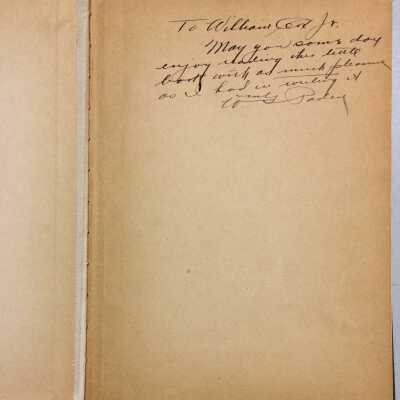 To William Cox Jr.
May you some day
enjoy reading this little
book with as much pleasure
as I had in writing it